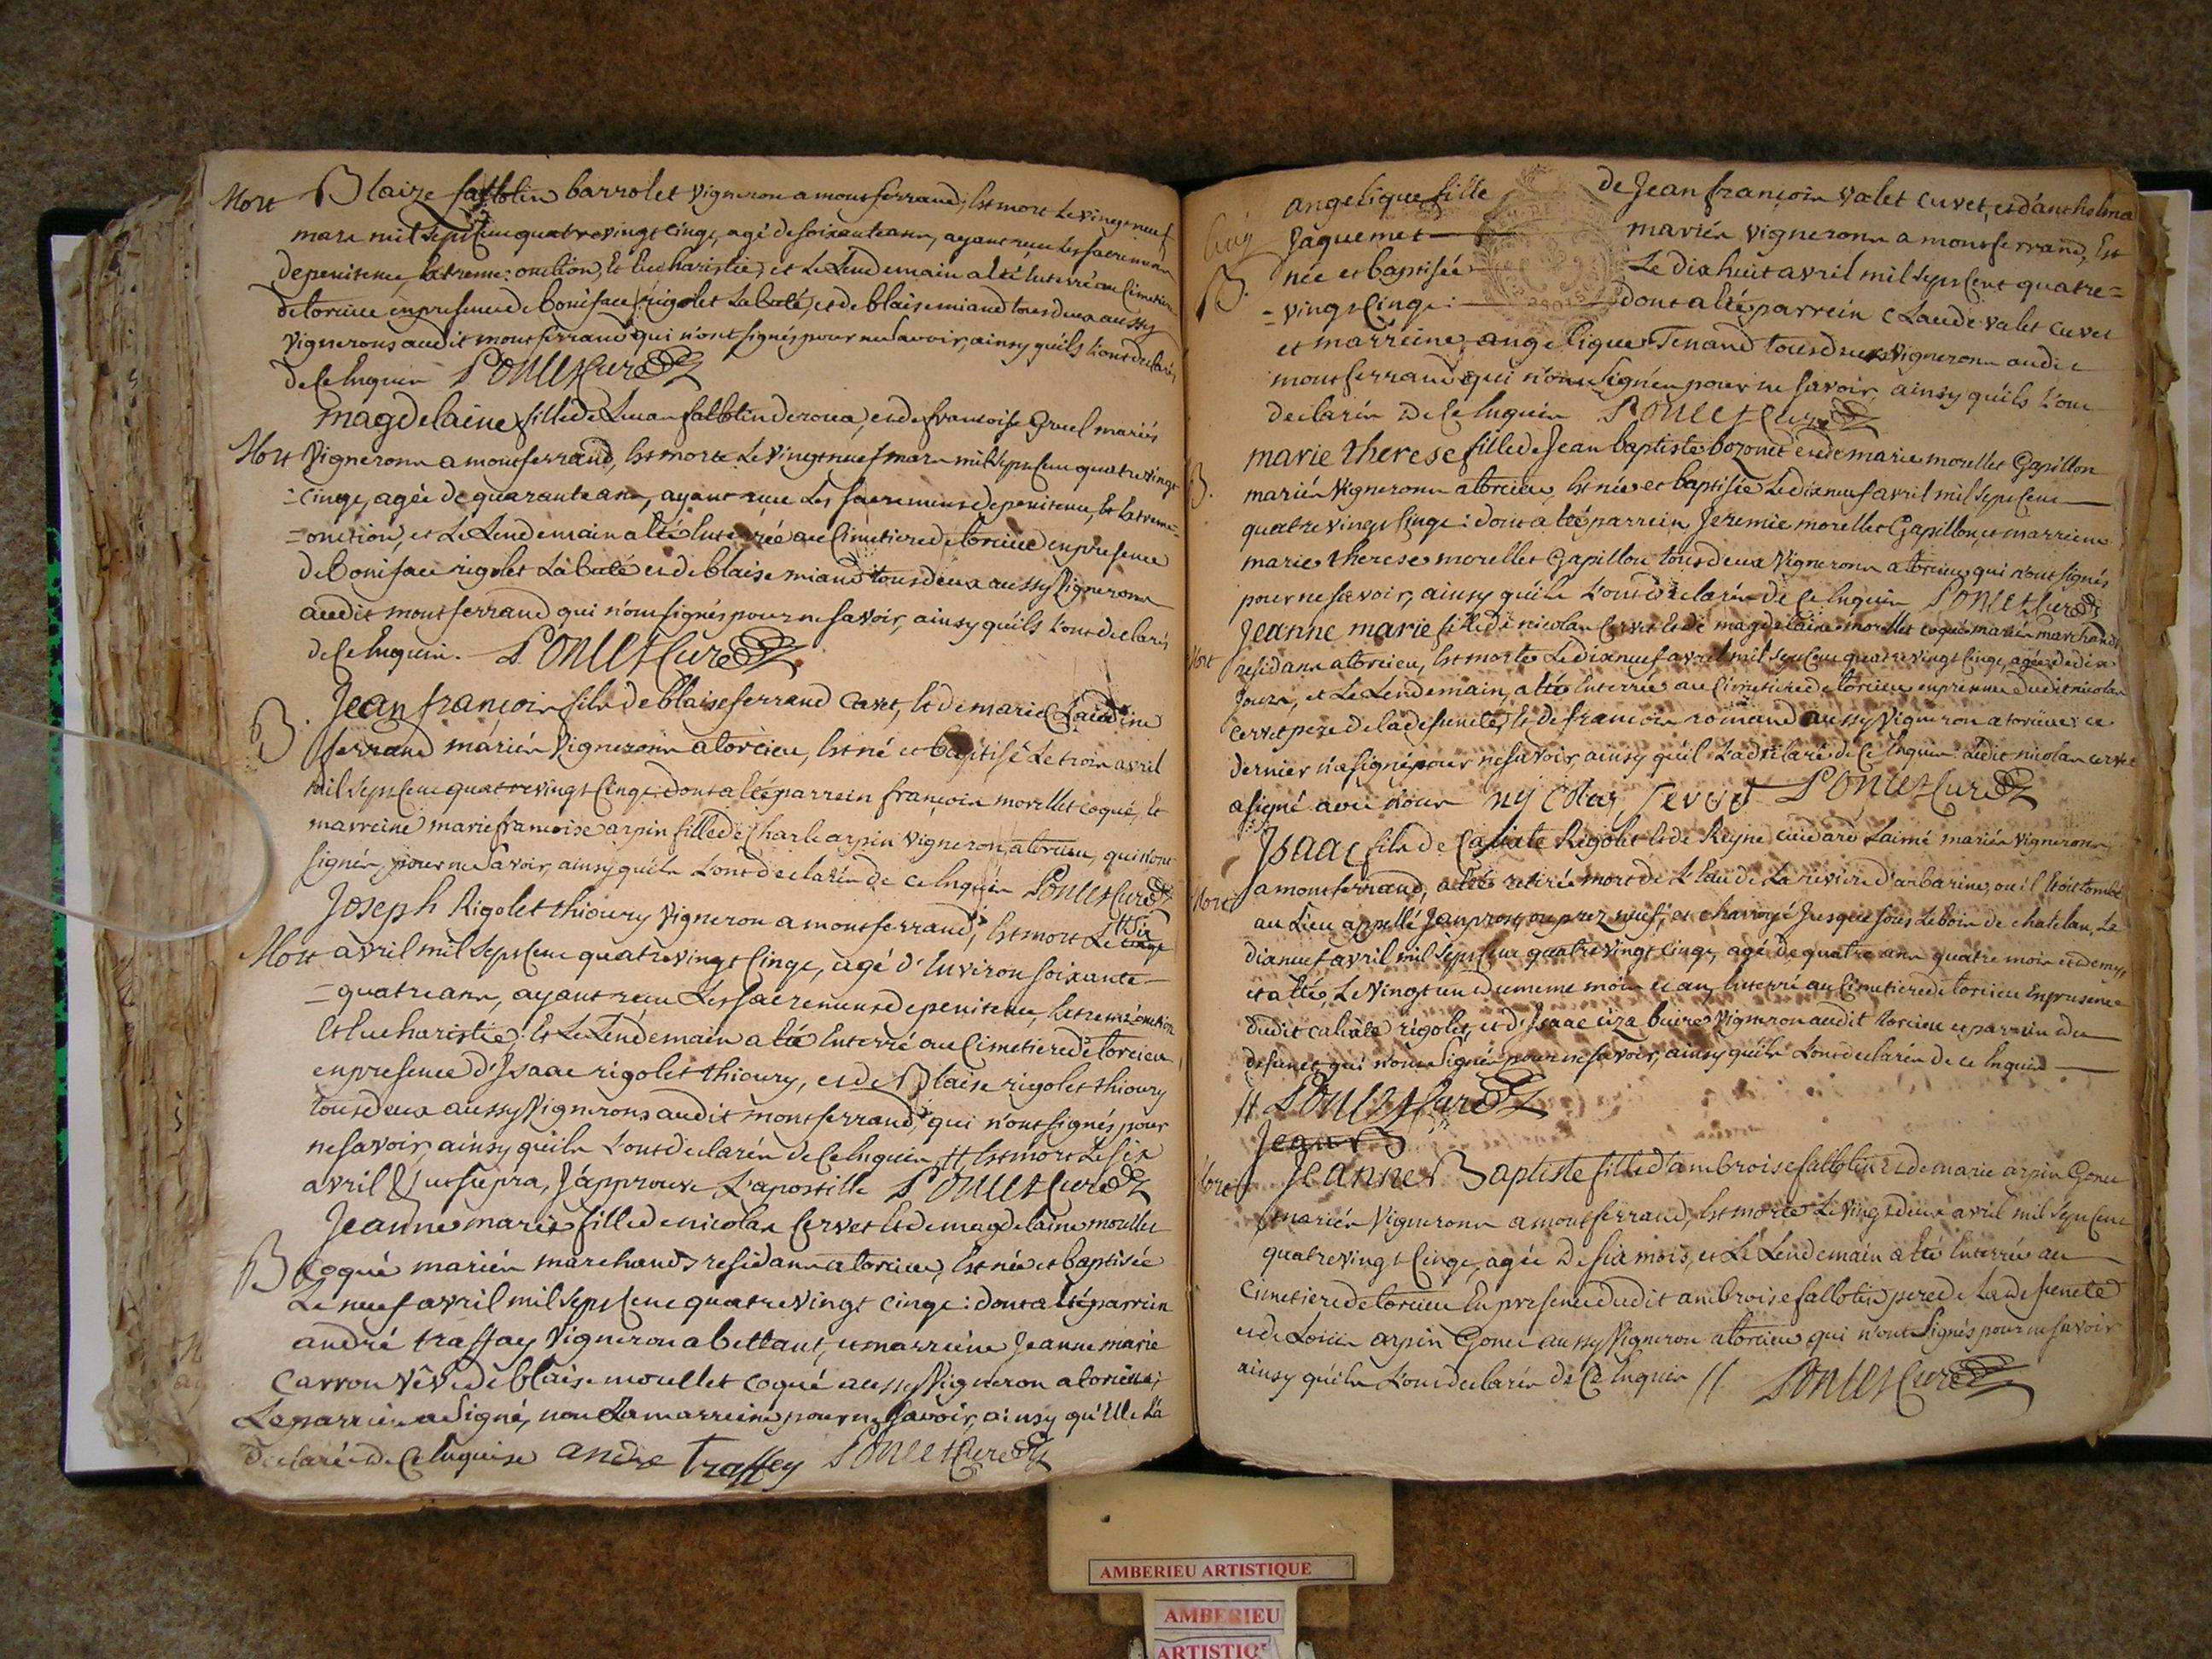 Mort Blaize fallotin barrolet vigneron a montferrand, Est mort Le vingt neuf
mars mil sept Cent quatre vingt Cinqe, agé de soixante ans, ayant reçu Les sacremens
de penitence, Extreme: onction, Et Eucharistie, et Le Lendemain a été Enterré au Cimetiere
de torcieu en presence de boniface rigolet Labaté, et de blaise miand tous deux aussy
vignerons audit montferrand qui n'ont signés pour ne savoir, ainsy qu'ils L'ont declarés
de Ce Enquis Poncet Curé
magdelaine fille de Lucas fallotin deroua, et de francoise Gruel mariés
Mort vignerons a montferrand, Est morte Le vingt neuf mars mil sept Cent quatre vingt
=Cinqe, agée de quarante ans, ayant reçu Les sacremens de penitence, Et Extreme=
=onction, et Le Lendemain a été Enterrée au Cimetiere de torcieu en presence
de boniface rigolet Labaté et de blaise miand tous deux aussy vignerons
audit montferrand qui n'ont signés pour ne savoir, ainsy qu'ils L'ont declarés
de Ce Enquis. Poncet Curé
Jean françois fils de blaise ferrand Cavet, Et de marie Claudine
B. ferrand mariés vignerons a torcieu, Est né et baptisé Le trois avril
mil sept Cent quatre vingt Cinqe dont a été parrein françois morellet coqué, Et
marreine marie francoise arpin fille de Charle arpin vigneron a torcieu, qui n'ont
signés, pour ne savoir, ainsy qu'ils L'ont declarés de ce Enquis Poncet Curé
Joseph Rigolet thioury vigneron a montferrand, Est mort Le cinqe
Mort avril mil sept Cent quatre vingt Cinqe, agé d'Environ soixante
=quatre ans, ayant reçu Les sacremens de penitence, Extreme onction
Et Eucharistie, Et Le Lendemain a été Enterré au Cimetiere de torcieu
en presence d'Isaac rigolet thioury, et de Blaise rigolet thioury
tous deux aussy vignerons audit montferrand, qui n'ont signés pour
ne savoir, ainsy qu'ils L'ont declarés de Ce Enquis # Est mort Le six
avril & ut supra, J'approuve L'apostille Poncet Curé
Jeanne marie fille de nicolas Cervet Et de magdelaine morellet
B Coqué mariés marchands residans a torcieu, Est née et baptisée
Le neuf avril mil sept Cent quatre vingt Cinqe: dont a été parrein
andré traffay vigneron a bettant, et marreine Jeanne marie
Carron vêve de blaise morellet coqué aussy vigneron a torcieu;
Le parrein a signé, non La marreine pour ne savoir, ainsy qu'Elle L'a
declaré de Ce Enquise andre traffey Poncet Curé
angelique fille de Jean françois valet Cuvet, et d'anthelma
Jaquemet mariés vignerons a montferrand, Est
B. née et baptisée Le dix huit avril mil sept Cent quatre=
=vingt Cinqe: dont a été parrein Claude valet Cuvet
et marreine angelique Tenand tous deux vignerons audit
montferrand qui n'ont signés pour ne savoir, ainsy qu'ils L'ont
declarés de Ce Enquis Poncet Curé
marie therese fille de Jean baptiste bozonet et de marie morellet Gapillon
B. mariés vignerons a torcieu, Est née et baptisée Le dix neuf avril mil sept Cent
quatre vingt Cinqe: dont a été parrein Jeremie morellet Gapillon, et marreine
marie therese morellet Gapillon tous deux vignerons a torcieu qui n'ont signés
pour ne savoir, ainsy qu'ils L'ont declarés de Ce Enquis Poncet Curé
Jeanne marie fille de nicolas Cervet Et de magdelaine morellet coqué mariés marchands
Mort residans a torcieu, Est morte Le dix neuf avril mil sept Cent quatre vingt Cinqe, agée de dix
Jours, et Le Lendemain a été Enterrée au Cimetiere de torcieu en presence dudit nicolas
Cervet pere de la defuncte, Et de francois romand aussy vigneron a torcieu: ce
dernier n'a signé pour ne savoir, ainsy qu'il L'a declaré de Ce Enquis: Ledit nicolas Cervet
a signé avec nous nycolas Cervet Poncet Curé
Isaac fils de Caliate Rigolet Et de Reyne Laimé mariés vignerons
Mort a montferrand, a été retiré mort de L'Eau de La riviere d'arbarine, ou il Etoit tombé
au Lieu appellé ou prez neuf, et charroyé Jusques sous Le bois de chatelan, Le
dix neuf avril mil sept Cent quatre vingt Cinqe, agé de quatre ans quatre mois et demy,
et a été Le vingt un du meme mois et an, Enterré au Cimetiere de torcieu En presence
dudit caliate rigolet, et d'Isaac buire vigneron audit torcieu et parrein du
defunct qui n'ont signés pour ne savoir, ainsy qu'ils L'ont declarés de ce Enquis
// Poncet Curé
Jean B
Mort Jeanne Baptiste fille d'ambroise fallotin et de marie arpin Gonet
mariés vignerons a montferrand, Est morte Le vingt deux avril mil sept Cent
quatre vingt Cinqe, agée de six mois, et Le Lendemain a été Enterrée au
Cimetiere de torcieu En presence dudit ambroise fallotin pere de La defuncte
et de Loüis arpin Gonet aussy vigneron a torcieu, qui n'ont signés pour ne savoir
ainsy qu'ils L'ont declarés de Ce Enquis // Poncet Curé
AMBERIEU ARTISTIQUE
AMBERIEU
ARTISTIQ